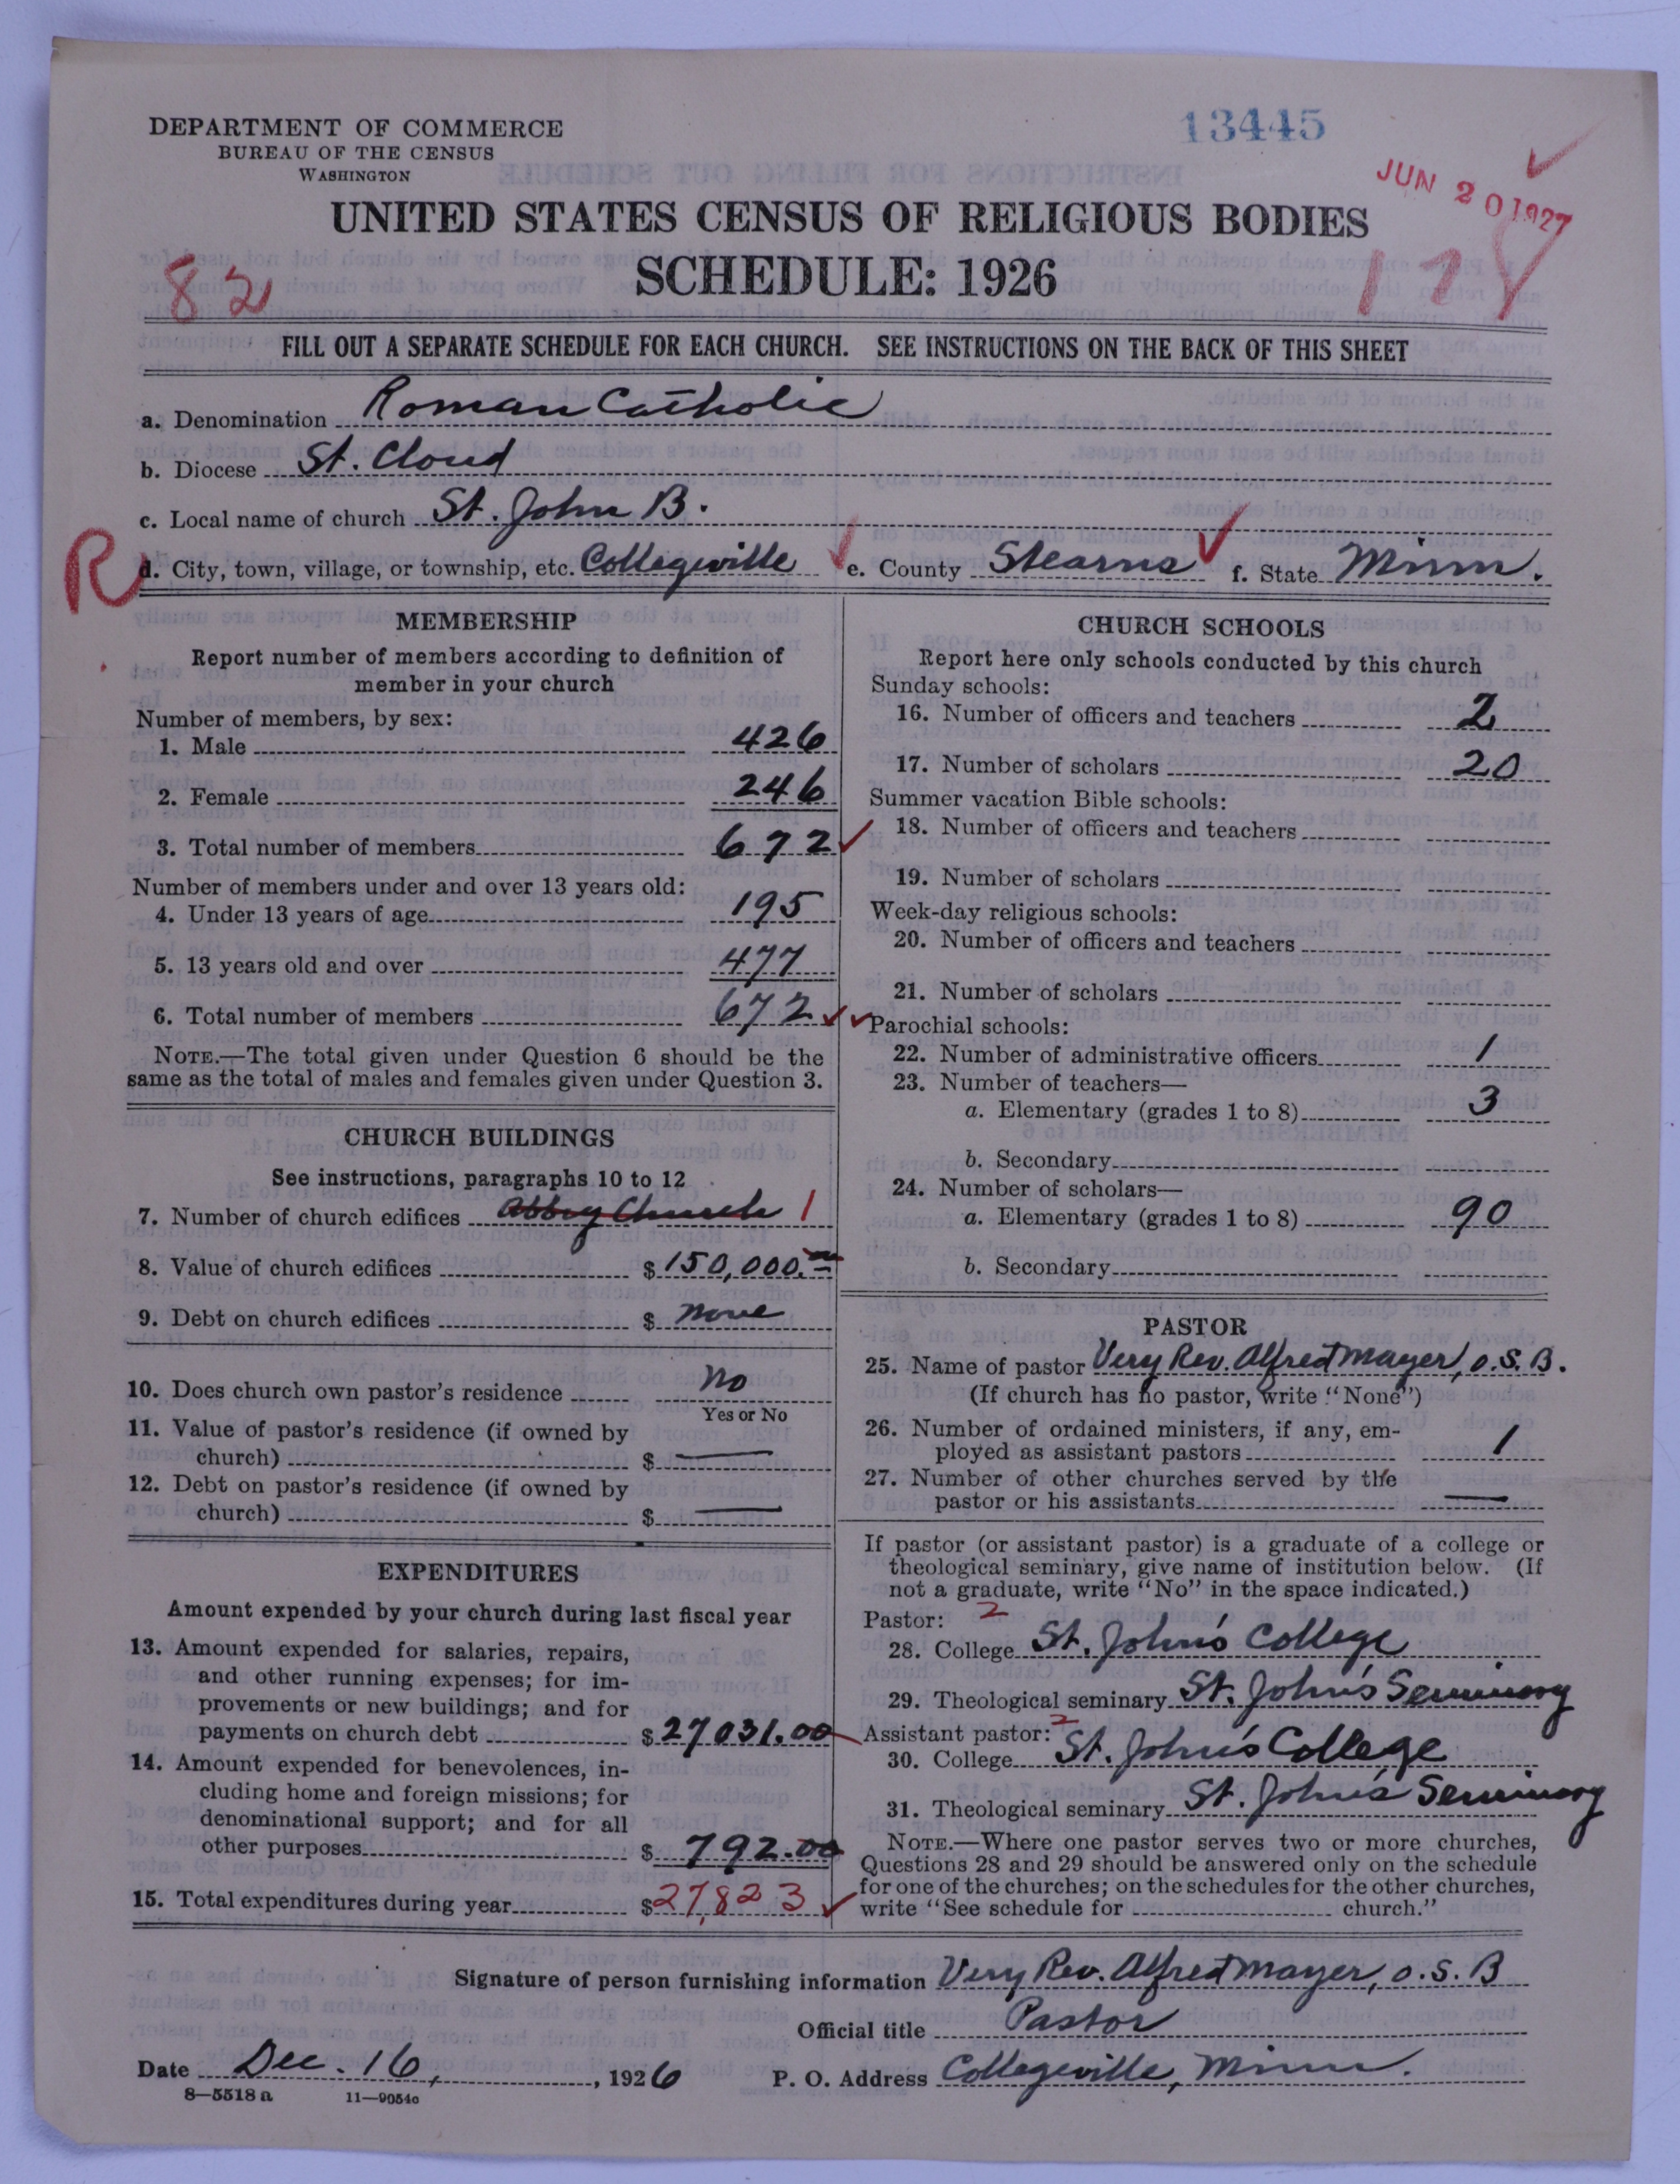 DEPARTMENT OF COMMERCE
BUREAU OF THE CENSUS
WASHINGTON
13445
JUN 20 1927
UNITED STATES CENSUS OF RELIGIOUS BODIES
SCHEDULE: 1926
82
117
FILL OUT A SEPARATE SCHEDULE FOR EACH CHURCH. SEE INSTRUCTIONS ON THE BACK OF THIS SHEET
a. Denomination Roman Catholic
b. Diocese St. Cloud
c. Local name of church St. John B.
R
d. City, town, village, or township, etc. Collegeville e. County Stearns f. State Minn.
MEMBERSHIP
Report number of members according to definition of
member in your church
Number of members, by sex:
1. Male 426
2. Female 246
3. Total number of members 672
Number of members under and over 13 years old:
4. Under 13 years of age 195
5. 13 years old and over 477
6. Total number of members 672
NOTE.—The total given under Question 6 should be the
same as the total of males and females given under Question 3.
CHURCH BUILDINGS
See instructions, paragraphs 10 to 12
7. Number of church edifices Abbey Church 1
8. Value of church edifices $150,000.00
9. Debt on church edifices $ none
10. Does church own pastor's residence No
Yes or No
11. Value of pastor's residence (if owned by
church) $ —
12. Debt on pastor's residence (if owned by
church) $ —
EXPENDITURES
Amount expended by your church during last fiscal year
13. Amount expended for salaries, repairs,
and other running expenses; for im-
provements or new buildings; and for
payments on church debt $27031.00
14. Amount expended for benevolences, in-
cluding home and foreign missions; for
denominational support; and for all
other purposes $ 792.00
15. Total expenditures during year $27,823
CHURCH SCHOOLS
Report here only schools conducted by this church
Sunday schools:
16. Number of officers and teachers 2
17. Number of scholars 20
Summer vacation Bible schools:
18. Number of officers and teachers
19. Number of scholars
Week-day religious schools:
20. Number of officers and teachers
21. Number of scholars
Parochial schools:
22. Number of administrative officers 1
23. Number of teachers—
a. Elementary (grades 1 to 8) 3
b. Secondary
24. Number of scholars—
a. Elementary (grades 1 to 8) 90
b. Secondary
PASTOR
25. Name of pastor Very Rev. Alfred Mayer, O.S.B.
(If church has no pastor, write "None")
26. Number of ordained ministers, if any, em-
ployed as assistant pastors 1
27. Number of other churches served by the
pastor or his assistants —
If pastor (or assistant pastor) is a graduate of a college or
theological seminary, give name of institution below. (If
not a graduate, write "No" in the space indicated.)
Pastor: 2
28. College St. John's College
29. Theological seminary St. John's Seminary
Assistant pastor: 2
30. College St. John's College
31. Theological seminary St. John's Seminary
NOTE.—Where one pastor serves two or more churches,
Questions 28 and 29 should be answered only on the schedule
for one of the churches; on the schedules for the other churches,
write "See schedule for church."
Signature of person furnishing information Very Rev. Alfred Mayer, O.S.B
Official title Pastor
Date Dec. 16, , 1926 P. O. Address Collegeville, Minn.
8—5518 a 11—9054a